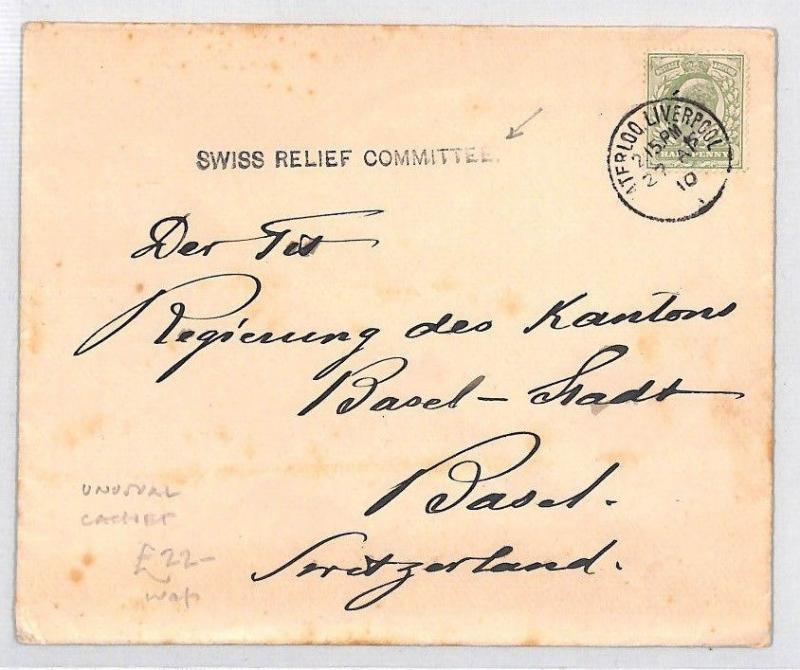 SWISS RELIEF COMMITTEE.
WATERLOO. LIVERPOOL
2.15 PM
10
HALFPENNY
Der Tit
Regierung des Kantons
Basel-Stadt
Basel.
Switzerland.
UNUSUAL
CACHET
£22-